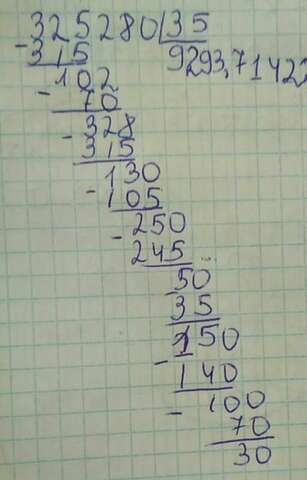 325280 35
- 315 9293,71422
102
- 70
- 328
315
130
- 105
- 250
245
50
35
150
- 140
- 100
70
30